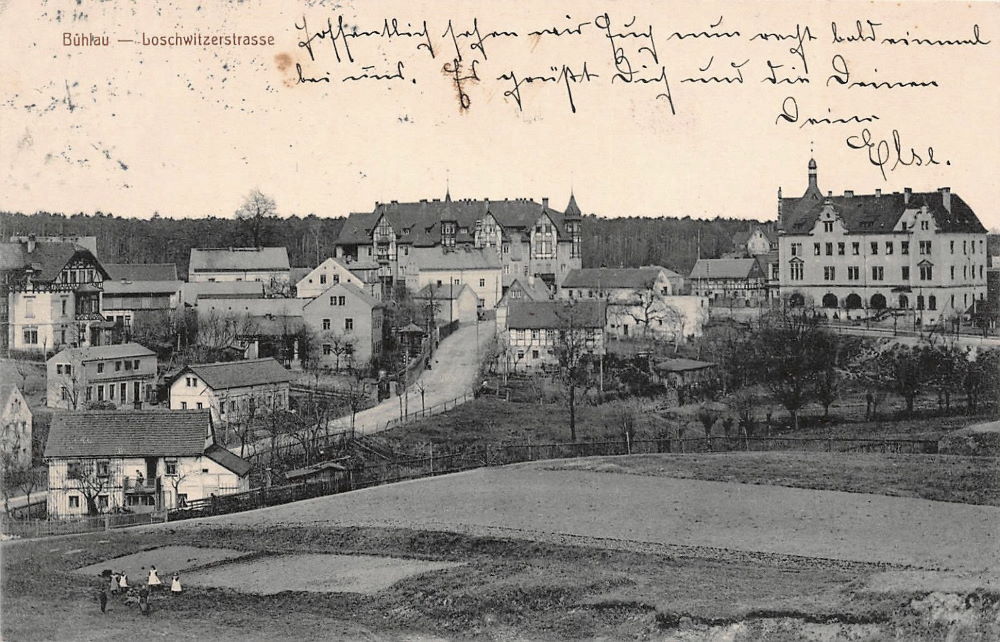 Bühlau — Loschwitzerstrasse
Hoffentlich sehen wir Euch nun recht bald einmal
bei uns. Es grüßt Dich und die Deinen
Deine
Else.